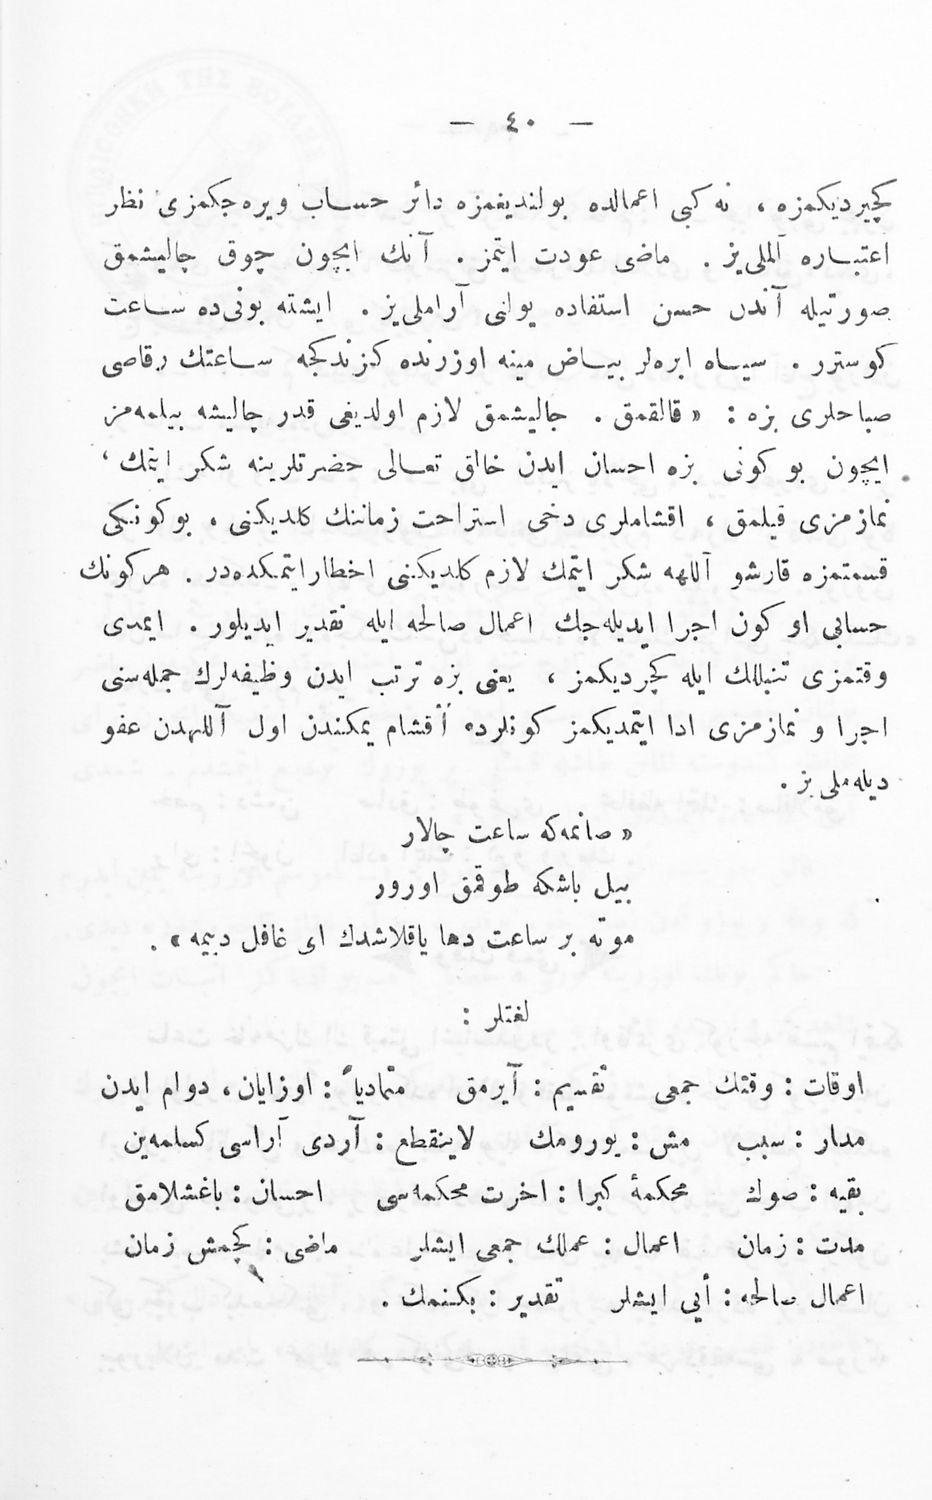 — ٤٠ —
كچيرديكمزه ، نه كبى اعمالده بولنديغمزه دائر حساب ويره جكمزى نظر
اعتباره آلملى‌يز . ماضى عودت ايتمز . آنك ايچون چوق چاليشمق
صورتيله آندن حسن استفاده يولنى آراملى‌يز . ايشته بونى‌ده ساعت
كوسترر . سياه ابره‌لر بياض مينه اوزرنده كزندكجه ساعتك رقاصى
صباحلرى بزه : « قالقمق . چاليشمق لازم اولديغى قدر چاليشه بيلمه‌مز
ايچون بو كونى بزه احسان ايدن خالق تعالى حضرتلرينه شكر ايتمك ،
نمازمزى قيلمق ، اقشاملرى دخى استراحت زماننك كلديكنى ، بو كونكى
قسمتمزه قارشو آللهه شكر ايتمك لازم كلديكنى اخطار ايتمكده‌در . هر كونك
حسابى او كون اجرا ايديله‌جك اعمال صالحه ايله تقدير ايديلور . ايمدى
وقتمزى تنبللك ايله كچرديكمز ، يعنى بزه ترتب ايدن وظيفه‌لرك جمله‌سنى
اجرا و نمازمزى ادا ايتمديكمز كونلرده أقشام يمكندن اول آللهدن عفو
ديله‌ملى يز .
« صانمه‌كه ساعت چالار
بيل باشكه طوقمق اورور
موته بر ساعت دها ياقلاشدك اى غافل ديمه » .
لغتلر :
اوقات : وقتك جمعى تقسيم : آيرمق متمادياً : اوزايان ، دوام ايدن
مدار : سبب مش : يورومك لاينقطع : آردى آراسى كسلمه‌ين
بقيه : صوك محكمۀ كبرا : اخرت محكمه‌سى احسان : باغشلامق
مدت : زمان اعمال : عملك جمعى ايشلر ماضى : كچمش زمان
اعمال صالحه : أيى ايشلر تقدير : بكنمك .